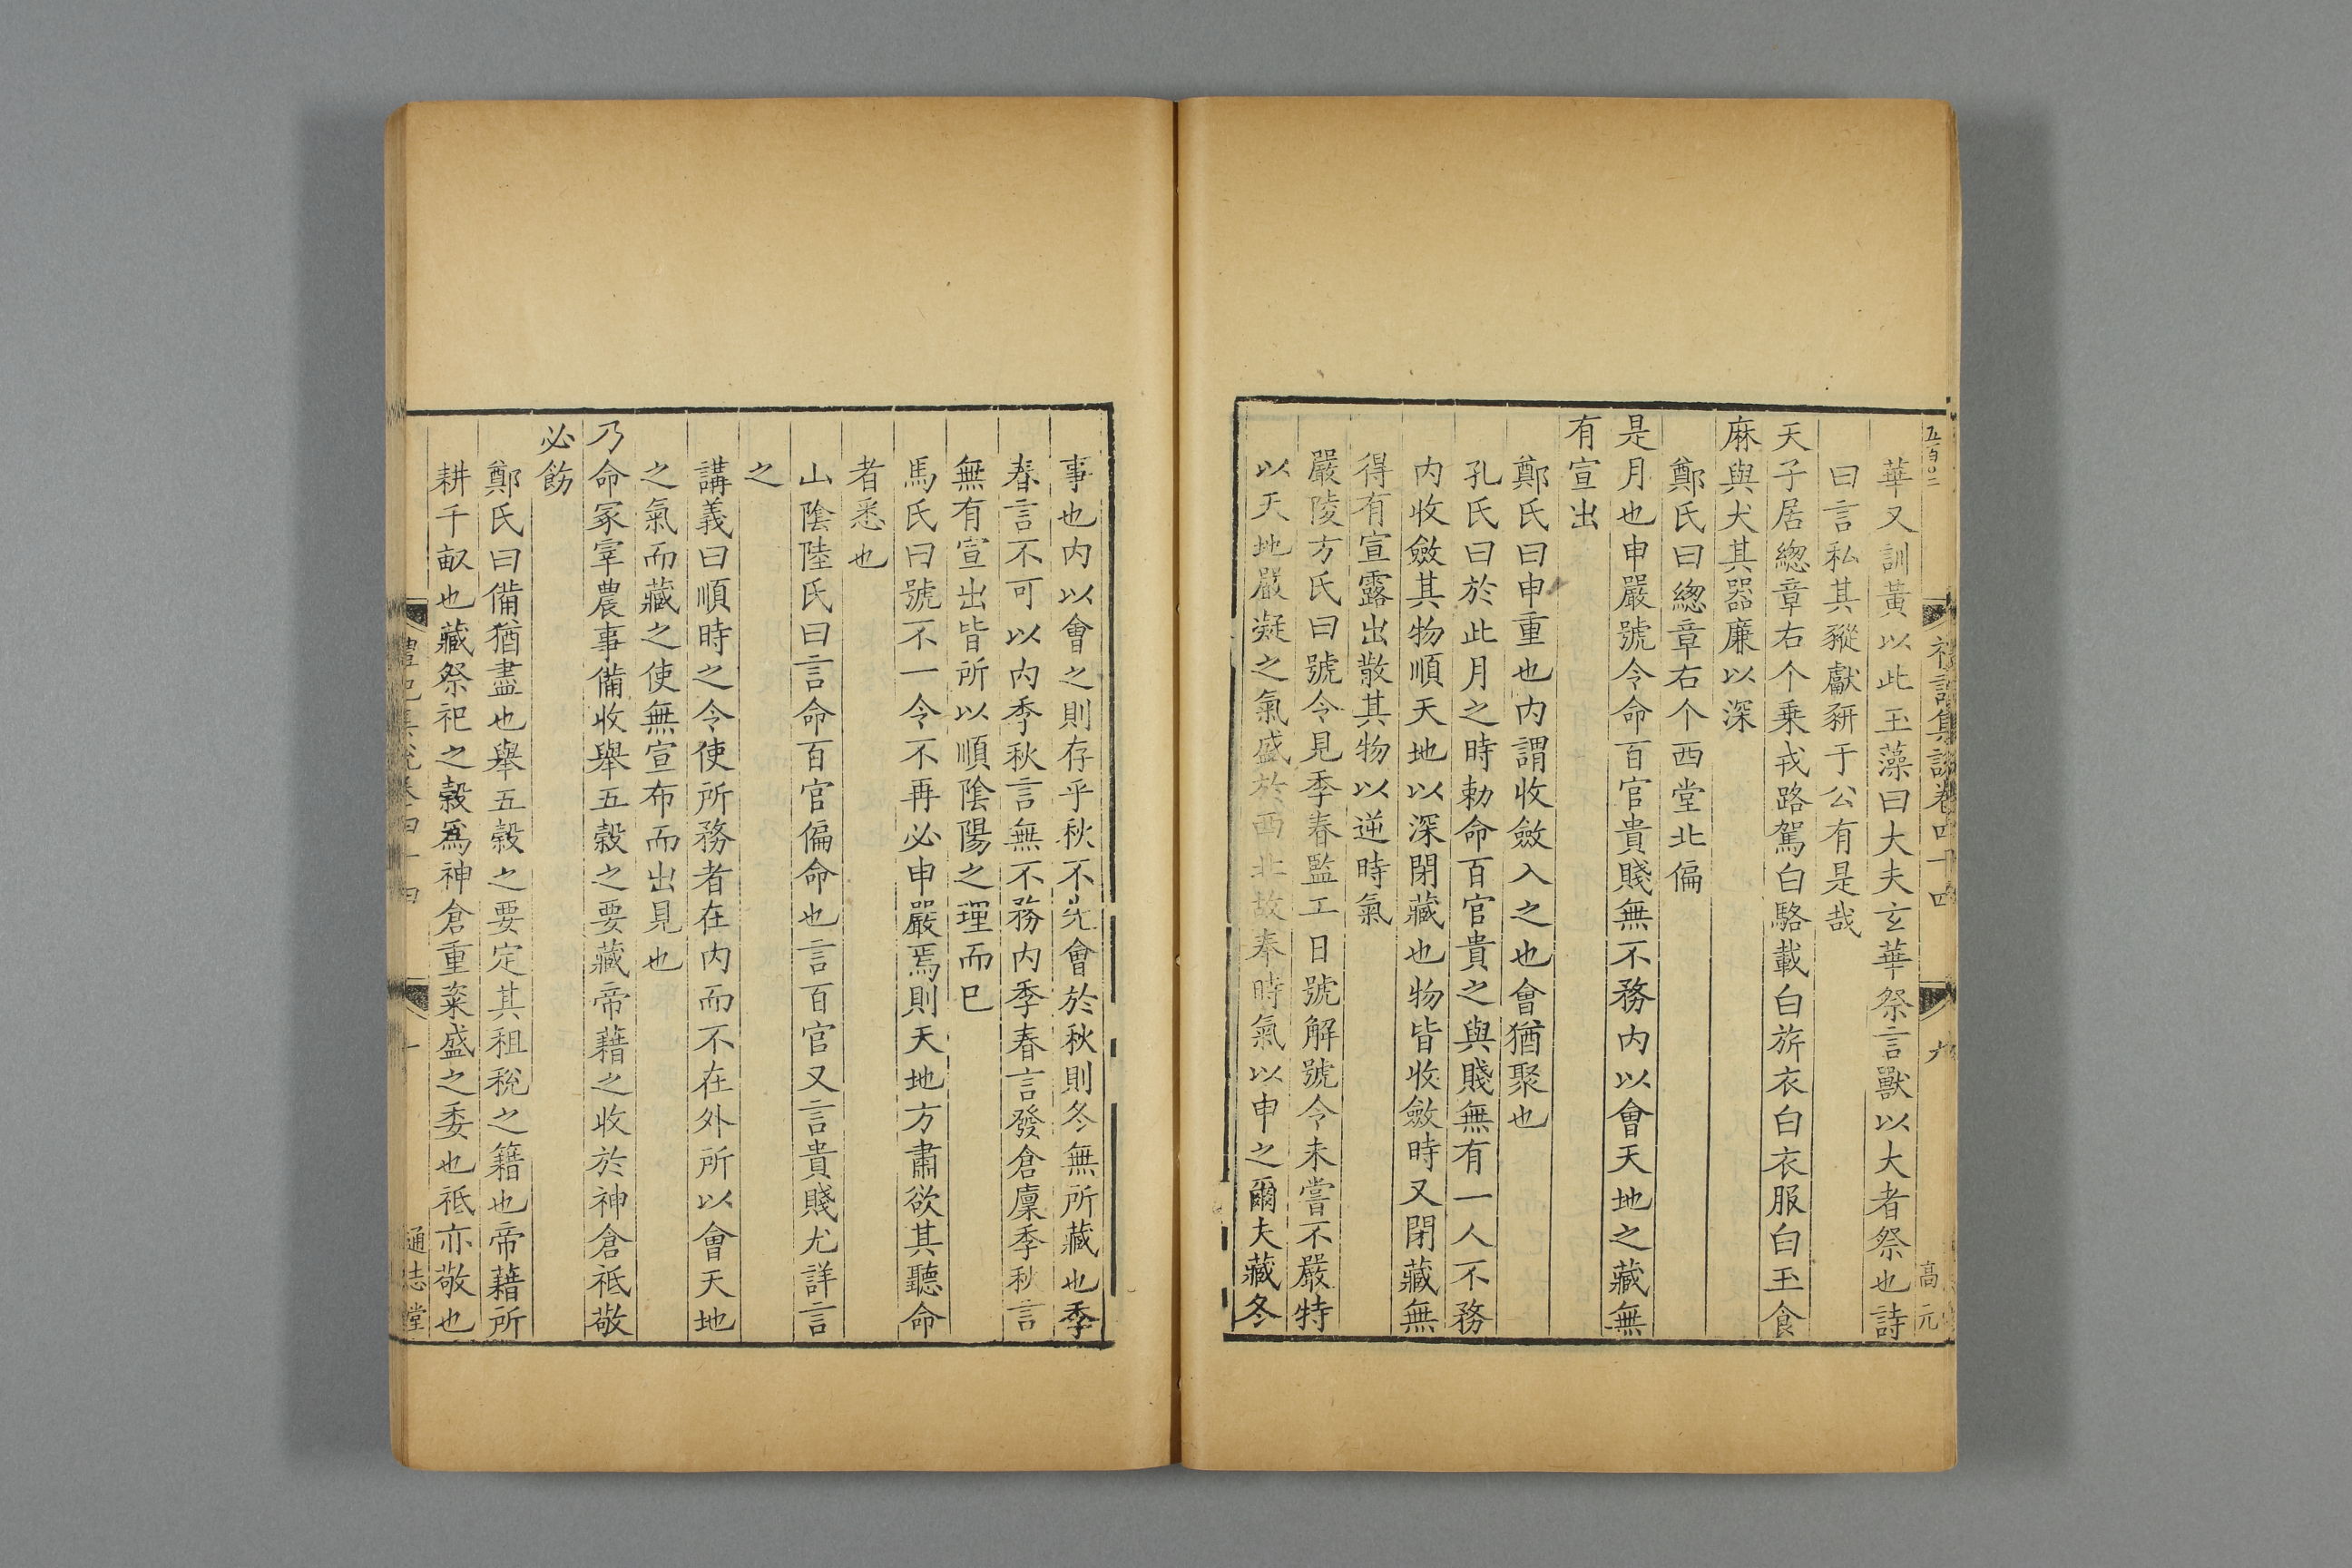 五百〇二
禮記集說卷四十四
九
高元
華又訓黃以此玉藻曰大夫玄華祭言獸以大者祭也詩
曰言私其豵獻豜于公有是哉
天子居緫章右个乗戎路駕白駱載白旂衣白衣服白玉食
麻與犬其器廉以深
鄭氏曰緫章右个西堂北偏
是月也申嚴號令命百官貴賤無不務內以會天地之藏無
有宣出
鄭氏曰申重也內謂收斂入之也會猶聚也
孔氏曰於此月之時勑命百官貴之與賤無有一人不務
內收斂其物順天地以深閉藏也物皆收斂時又閉藏無
得有宣露出散其物以逆時氣
嚴陵方氏曰號令見季春監工日號解號令未嘗不嚴特
以天地嚴凝之氣盛於西北故奉時氣以申之爾夫藏冬
事也內以會之則存乎秋不先會於秋則冬無所藏也季
春言不可以內季秋言無不務內季春言發倉廩季秋言
無有宣出皆所以順陰陽之理而已
馬氏曰號不一令不再必申嚴焉則天地方肅欲其聽命
者悉也
山陰陸氏曰言命百官偏命也言百官又言貴賤尤詳言
之
講義曰順時之令使所務者在內而不在外所以會天地
之氣而藏之使無宣布而出見也
乃命冢宰農事備收舉五穀之要藏帝藉之收於神倉祗敬
必飭
鄭氏曰備猶盡也舉五穀之要定其租稅之籍也帝藉所
耕千畝也藏祭祀之穀爲神倉重粢盛之委也祗亦敬也
禮記集說卷四十四
十
通志堂